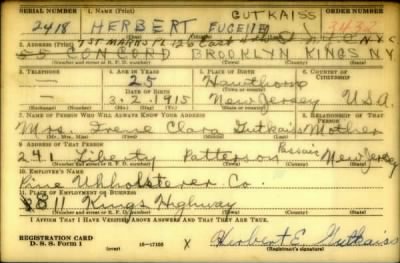 SERIAL NUMBER 1. NAME (Print) ORDER NUMBER
GUTKAISS
2418 HERBERT EUGENE
(First) (Middle) (Last)
2. ADDRESS (Print)
CONCORD BROOKLYN KINGS NY
(Number and street or R. F. D. number) (Town) (County) (State)
3. TELEPHONE 4. AGE IN YEARS 5. PLACE OF BIRTH 6. COUNTRY OF CITIZENSHIP
— 25 Hawthorne
DATE OF BIRTH (Town or county)
— 3-2-1915 New Jersey U.S.A.
(Exchange) (Number) (Mo.) (Day) (Yr.) (State or country)
7. NAME OF PERSON WHO WILL ALWAYS KNOW YOUR ADDRESS 8. RELATIONSHIP OF THAT PERSON
Mrs. Irene Clara Gutkaiss Mother
(Mr., Mrs., Miss) (First) (Middle) (Last)
9. ADDRESS OF THAT PERSON
241 Liberty Patterson Passaic New Jersey
(Number and street or R. F. D. number) (Town) (County) (State)
10. EMPLOYER'S NAME
Upholsterer Co.
11. PLACE OF EMPLOYMENT OR BUSINESS
811 Kings Highway
(Number and street or R. F. D. number) (Town) (County) (State)
I AFFIRM THAT I HAVE VERIFIED ABOVE ANSWERS AND THAT THEY ARE TRUE.
REGISTRATION CARD
D. S. S. Form 1 16—17105 X Herbert E. Gutkaiss
(Registrant's signature)